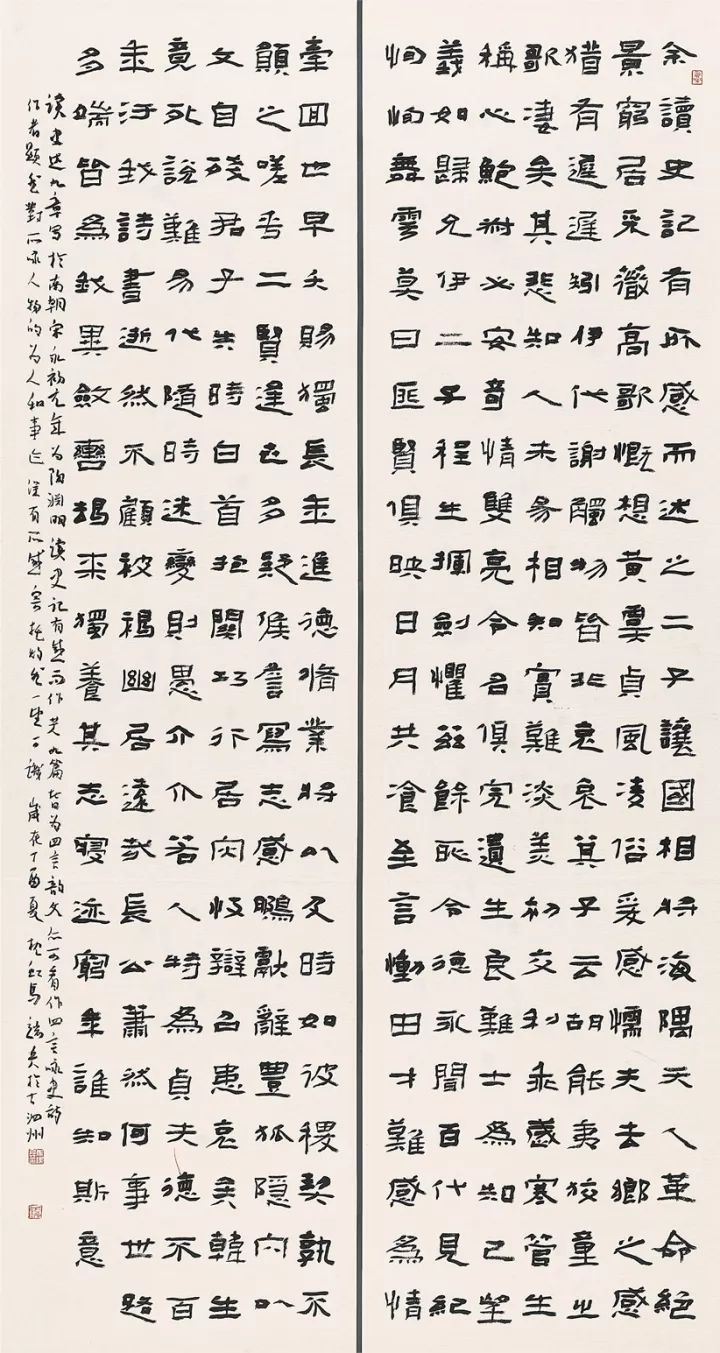 余讀史記有所感而述之二子讓國相將海隅天人革命絕
景窮居采薇高歌慨想黃虞貞風凌俗爰感懦夫去鄉之感
猶有遲遲矧伊代謝觸物皆非哀哀其子云胡能夷狡童之
歌淒矣其悲知人未易相知實難淡美初交利乖歲寒管生
稱心鮑叔必安奇情雙亮令名俱完遺生良難士為知己望
義如歸允伊二子程生揮劍懼茲餘恥令德永聞百代見紀
恂恂舞雩莫曰匪賢俱映日月共飡至言慟由才難感為情
牽回也早夭賜獨長年進德脩業將以及時如彼稷契孰不
願之嗟乎二賢逢世多疑候詹寫志感鵩獻辭豐狐隱穴以
文自殘君子失時白首抱關巧行居災忮辯召患哀矣韓生
竟死說難易代隨時迷變則愚介介若人特為貞夫德不百
年汙我詩書逝然不顧被褐幽居遠哉長公蕭然何事世路
多端皆為我異斂轡朅來獨養其志寢迹窮年誰知斯意
讀史述九章寫於南朝宋永初元年為陶淵明讀史記有感而作共九篇皆為四言韻文亦可看作四言詠史詩
作者對所詠人物的為人和事迹深有所感 歲在丁酉夏 於古泗州